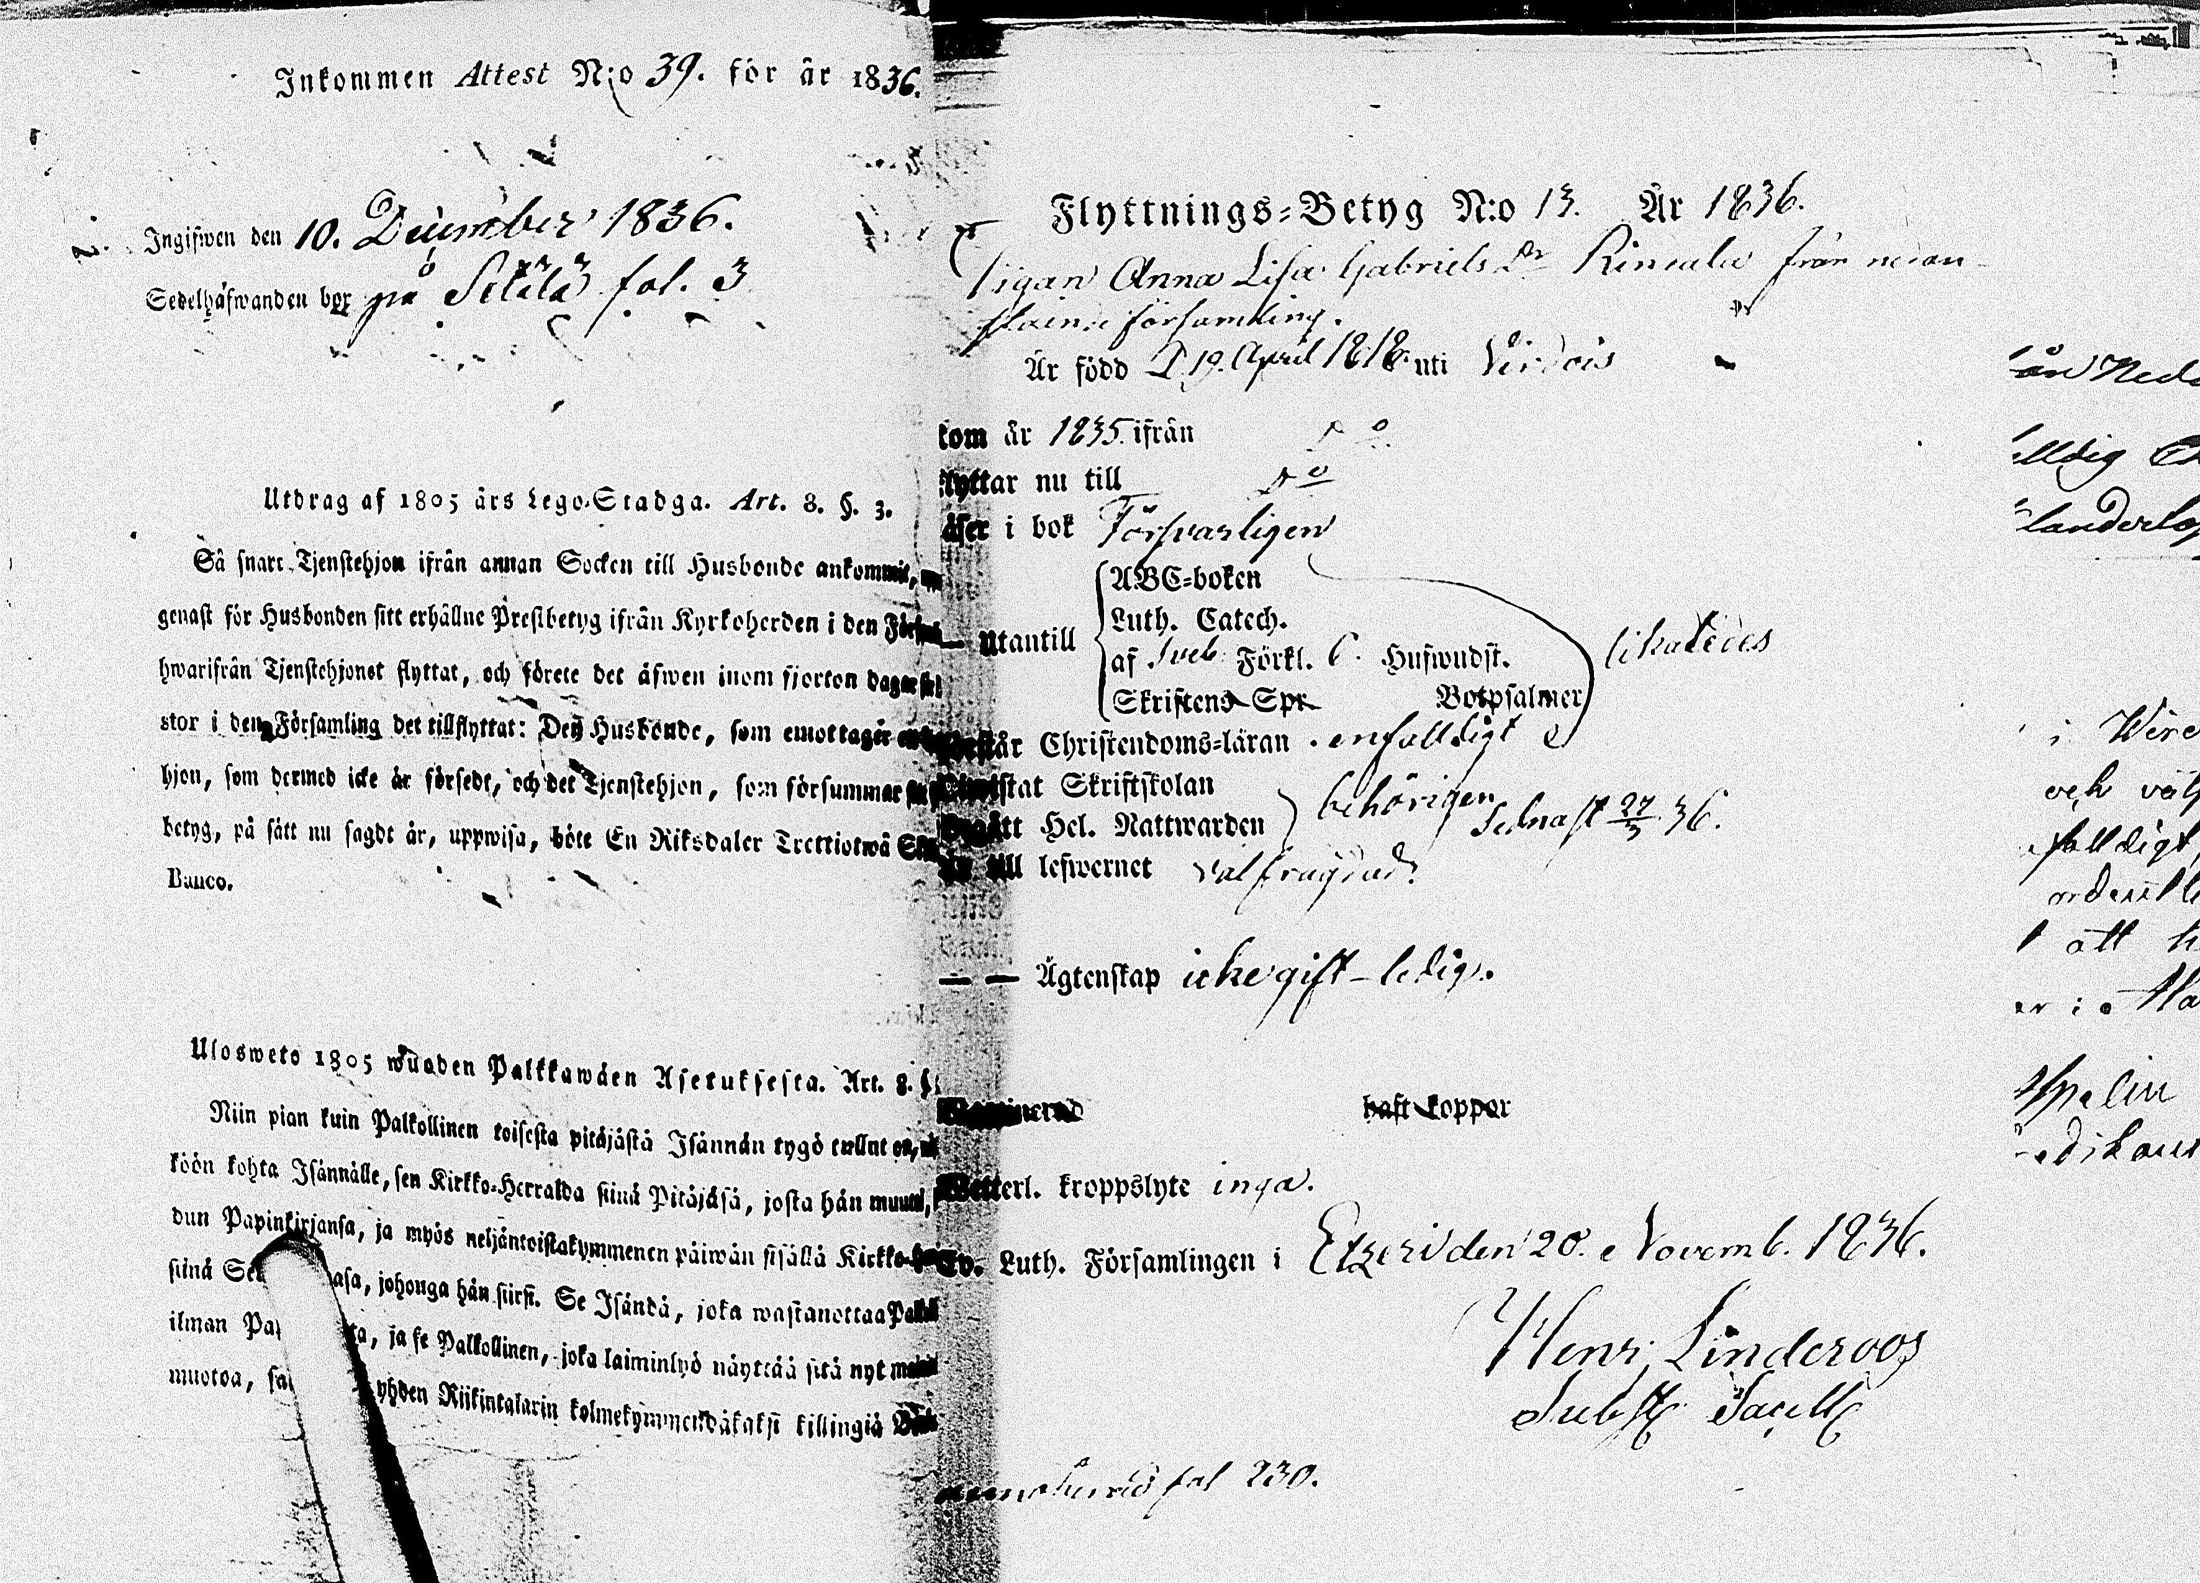 Inkommen Attest N:o 39. för år 1836.
Ingifwen den 10. December 1836.
Sedelhafwanden bor på Setälä fol. 3
Utdrag af 1805 års Lego-Stadga. Art. 8. §. 3.
Så snart Tjenstehjon ifrån annan Socken till Husbonde ankommit,
genast för Husbonden sitt erhållne Prestbetyg ifrån Kyrkoherden i den
hwarifrån Tjenstehjonet flyttat, och förete det äfwen inom fjorton dagar
stor i den Församling det tillflyttat: Den Husbonde, som emottager
hjon, som dermed icke är försedt, och det Tjenstehjon, som försummar
betyg, på sätt nu sagdt är, uppwisa, böte En Riksdaler Trettiotwå
Banco.
Ulosweto 1805 wuoden Palkkawäen Asetuksesta. Art. 8. §
Niin pian kuin Palkollinen toisesta pitäjästä Isännän tygö tullut on,
köön kohta Isännälle, sen Kirkko-Herralda siinä Pitäjäsä, josta hän
dun Papinkirjansa, ja myös neljäntoistakymmenen päiwän sisällä
siinä asa, johonga hän siirsi. Se Isändä, joka wastanottaa
ilman ja se Palkollinen, joka laiminlyö näyttää sitä nyt
muotoa, yhden Riikintalarin kolmekymmendäkaksi killingiä
Flyttnings-Betyg N:o 13. År 1836.
Pigan Anna Lisa Gabriels Dr från nedan
församling.
Är född D. 19. April 1818 uti Virdois
kom år 1835. ifrån Do
flyttar nu till Do
läser i bok Försvarligen
— Utantill
ABC-boken
Luth. Catech.
af Sveb. Förkl. 6. Hufwudst.
Skriftens Spr. Botpsalmer
likaledes
Förstår Christendoms-läran enfalldigt
Bewistat Skriftskolan
Begått Hel. Nattwarden behörigen sednast 27/3 36.
till lefwernet välfrägdad.
— — Ägtenskap icke gift - ledig.
haft koppor
Wetterl. kroppslyte inga.
Ev. Luth. Församlingen i Etzeri den 20. Novemb. 1836.
Henr. Linderoos
Subst. Sacell.
fol 230.